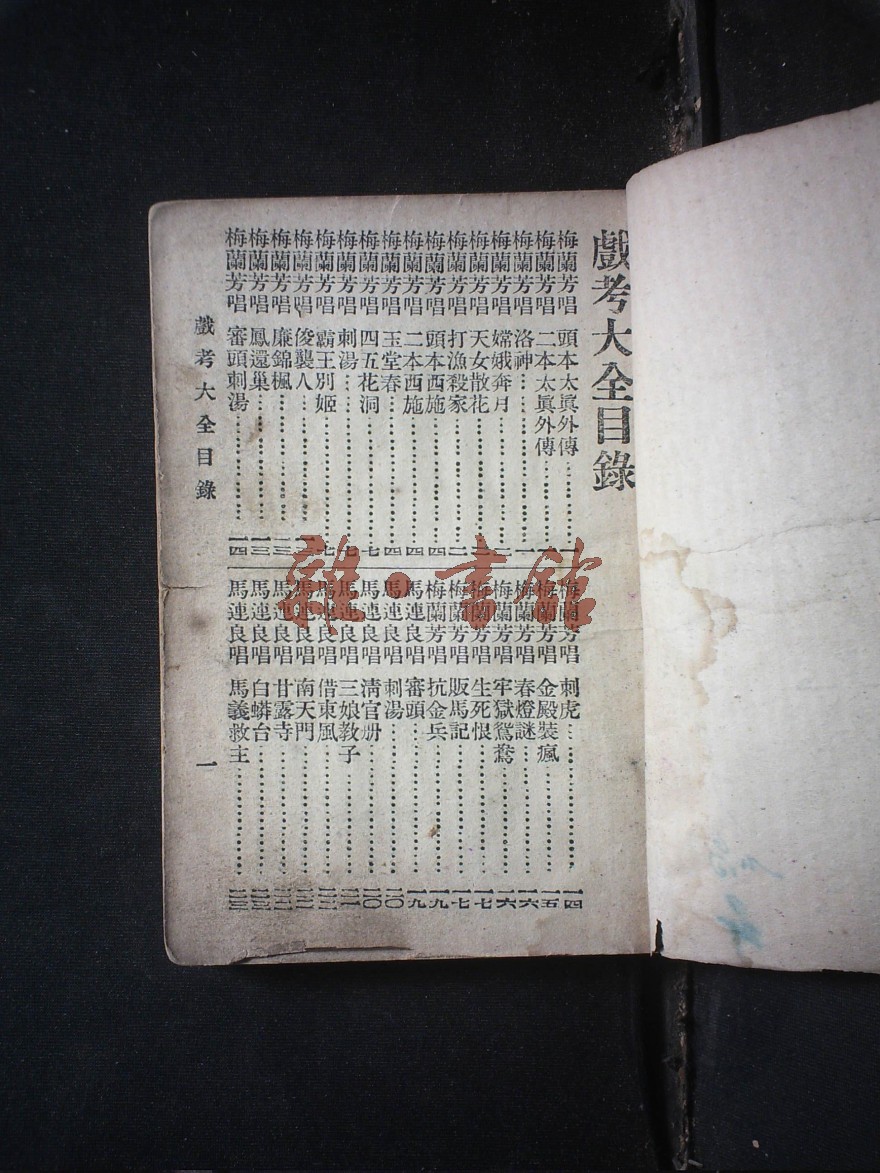 戲考大全目錄
梅蘭芳唱 頭本太眞外傳…………一
梅蘭芳唱 二本太眞外傳…………一
梅蘭芳唱 洛神…………一
梅蘭芳唱 嫦娥奔月…………二
梅蘭芳唱 天女散花…………二
梅蘭芳唱 打漁殺家…………二
梅蘭芳唱 頭本西施…………四
梅蘭芳唱 二本西施…………四
梅蘭芳唱 玉堂春…………四
梅蘭芳唱 四五花洞…………七
梅蘭芳唱 刺湯…………七
梅蘭芳唱 霸王別姬…………七
梅蘭芳唱 俊襲人…………
梅蘭芳唱 廉錦楓…………一三
梅蘭芳唱 鳳還巢…………一三
梅蘭芳唱 審頭刺湯…………一四
梅蘭芳唱 刺虎…………一四
梅蘭芳唱 金殿裝瘋…………一五
梅蘭芳唱 春燈謎…………一六
梅蘭芳唱 牢獄鴛鴦…………一六
梅蘭芳唱 生死恨…………一七
梅蘭芳唱 販馬記…………一七
梅蘭芳唱 抗金兵…………一九
馬連良唱 審頭…………一九
馬連良唱 刺湯…………二〇
馬連良唱 清官册…………二〇
馬連良唱 三娘敎子…………二一
馬連良唱 借東風…………
馬連良唱 南天門…………
馬連良唱 甘露寺…………
馬連良唱 白蟒台…………
馬連良唱 馬義救主…………二三
戲考大全目錄
一
雜·書館